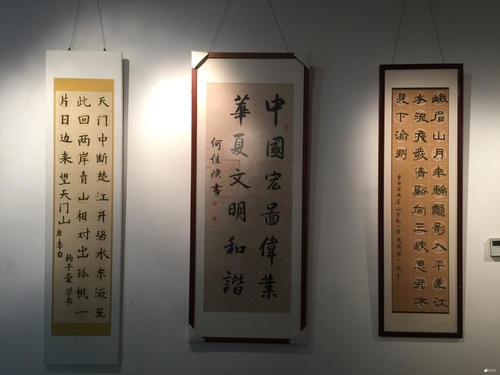 天门中断楚江开碧水东流至
此回两岸青山相对出孤帆一
片日边来望天门山唐李白
杨子蒙学书
中國宏圖偉業
華夏文明和諧
何佳焕書
峨眉山月半輪龝影入平羌江
水流夜發清谿向三峽思君不
見下渝州